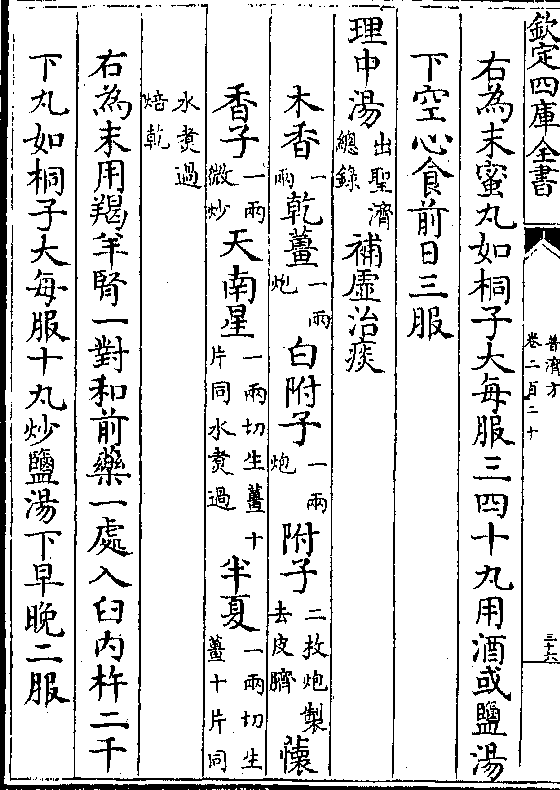 欽定四庫全書
普濟方
卷二百二十
三十六
右為末蜜丸如桐子大每服三四十丸用酒或鹽湯
下空心食前日三服
理中湯出聖濟總錄補虛治痰
木香一兩乾薑一兩炮白附子一兩炮附子二枚炮製去皮臍懷
香子一兩微炒天南星一兩切生薑十片同水煑過半夏一兩切生薑十片同
水煑過焙乾
右為末用羯羊腎一對和前藥一處入臼内杵二千
下丸如桐子大每服十丸炒鹽湯下早晚二服